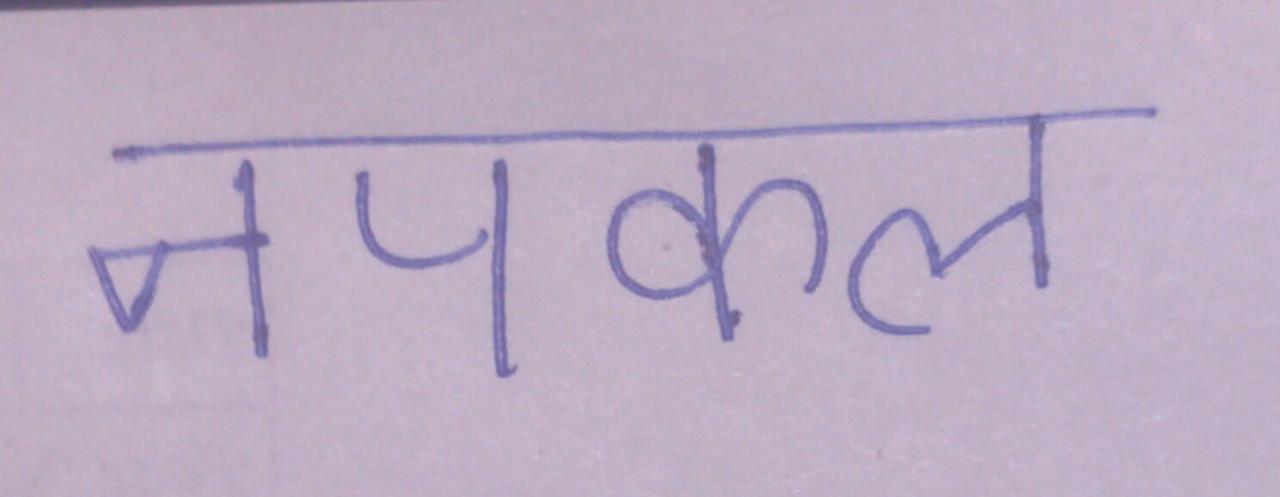 नपकल